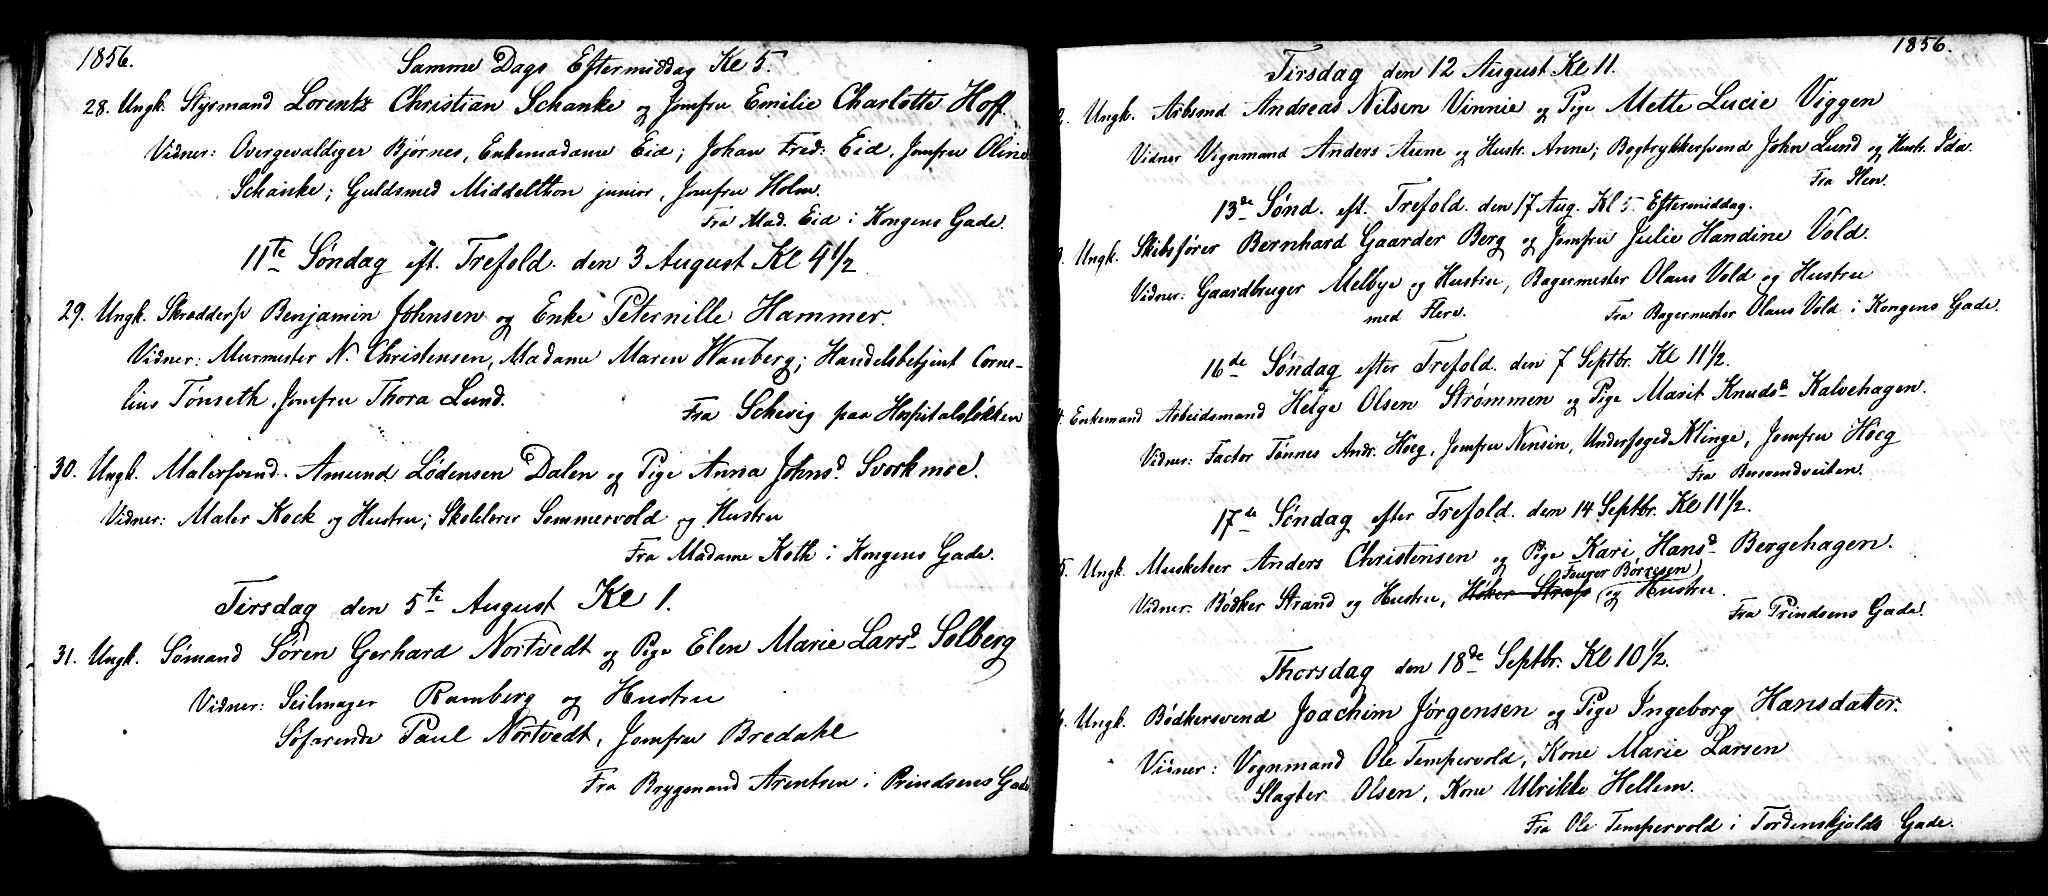 1856.
Samme Dags Eftermiddag Kl 5.
28. Ungk. Styrmand Lorentz Christian Schanke og Jomfru Emilie Charlotte Hoff.
Vidner: Overgevaldiger Bjørnes, Enkemadame Eid; Johan Fred: Eid, Jomfru Oline
Schanke; Guldsmed Middelthon junior, Jomfru Holm.
Fra Mad. Eid i Kongens Gade.
11te Søndag eft. Trefold. den 3 August Kl 4 1/2
29. Ungk. Skrædders. Benjamin Johnsen og Enke Peternille Hammer.
Vidner: Murmester N. Christensen, Madame Maren Wanberg; Handelsbetjent Corne-
lius Tønseth, Jomfru Thora Lund.
Fra Schevig paa Hospitalsløkken
30. Ungk. Malersvend. Amund Lødensen Dalen og Pige Anna Johnsd. Svorkmoe.
Vidner: Maler Kock og Hustru; Skolelærer Sommervold og Hustru
Fra Madame Koth i Kongens Gade.
Tirsdag den 5te August Kl 1.
31. Ungk. Sømand Søren Gerhard Nortvedt og Pige Elen Marie Larsd. Solberg
Vidner: Seilmager Ramberg og Hustru
Søfarende Paul Nortvedt, Jomfru Bredahl
Fra Brygmand Arentsen i Prindsens Gade
1856.
Tirsdag den 12 August Kl 11.
2. Ungk. Arbsmd Andreas Nilsen Vinnie og Pige Mette Lucie Viggen
Vidner Vognmand Anders Aune og Hustr. Anne; Bogtrykkersvend John Lund og Hustr. Ida.
Fra Ilen.
13de Sønd. eft. Trefold. den 17 Aug. Kl 5. Eftermiddag.
3. Ungk. Skibsfører Bernhard Gaarder Berg og Jomfru Julie Handine Vold.
Vidner: Gaardbruger Melbye og Hustru, Bagermester Olaus Vold og Hustru
med Flere.
Fra Bagermester Olaus Vold i Kongens Gade.
16de Søndag efter Trefold. den 7 Septbr. Kl 11 1/2.
4. Enkemand Arbeidsmand Helge Olsen Strømmen og Pige Marit Knudsd. Kalvehagen.
Vidner: Factor Tønnes Andr. Høeg, Jomfru Nensen, Underfoged Klinge, Jomfru Høeg
Fra
17de Søndag efter Trefold. den 14 Septbr. Kl 11 1/2.
5. Ungk. Musketeer Anders Christensen og Pige Kari Hansd. Bergehagen.
Fourer Børresen
Vidner: Bødker Strand og Hustru, Høker og Hustru.
Fra Prindsens Gade.
Thorsdag den 18de Septbr. Kl 10 1/2.
6. Ungk. Bødkersvend Joachim Jørgensen og Pige Ingeborg Hansdatter.
Vidner: Vognmand Ole Tempervold, Kone Marie Larsen
Slagter Olsen, Kone Ulrikke Hellem.
Fra Ole Tempervold i Tordenskjolds Gade.